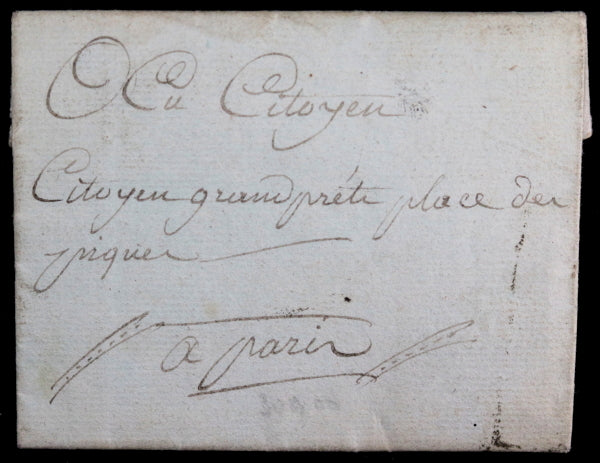 Au Citoyen
Citoyen grandpréte place des
piques
a paris